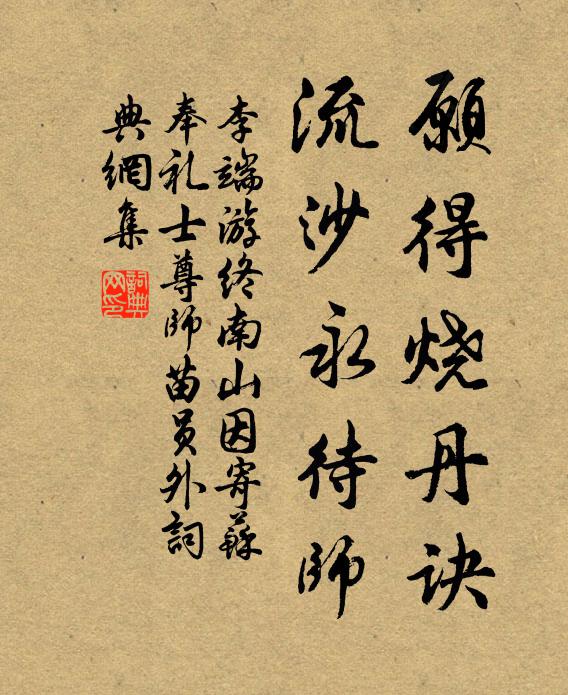 願得燒丹訣
流沙永待師
李端游终南山因寄蘇
奉礼士尊師苗員外詞
典網集
詞典
网印